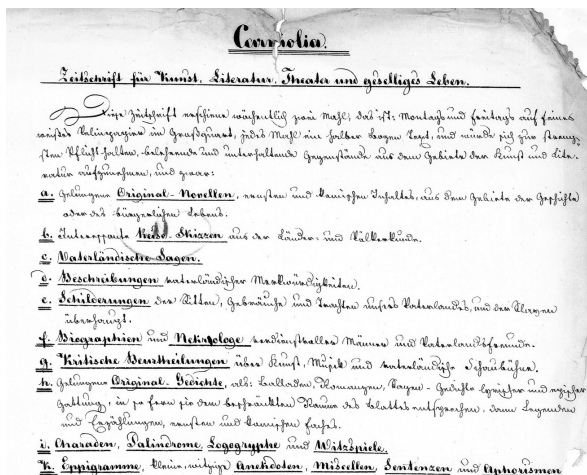 Carniolia.
Zeitschrift für Kunst, Literatur, Theater und geselliges Leben.
Diese Zeitschrift erscheine wöchentlich zwei Mahl, das ist: Montags und Freitags auf feines
weißes Velinpapier in Großquart, jedes Mahl ein halber Bogen Text, und würde sich zur streng-
sten Pflicht halten, belehrende und unterhaltende Gegenstände aus dem Gebiete der Kunst und Lite-
ratur aufzunehmen, und zwar:
a. Gelungene Original-Novellen, ernsten und komischen Inhaltes, aus dem Gebiete der Geschichte
oder des bürgerlichen Lebens.
b. Interessante Reise-Skizzen aus der Länder- und Völkerkunde.
c. Vaterländische Sagen.
d. Beschreibungen vaterländischer Merkwürdigkeiten.
e. Schilderungen der Sitten, Gebräuche und Trachten unsres Vaterlandes, und der Slaven
überhaupt.
f. Biographien und Nekrologe verdienstvoller Männer und Vaterlandsfreunde.
g. Kritische Beurtheilungen über Kunst, Musik und vaterländische Schaubühne.
h. Gelungene Original-Gedichte, als: Balladen, Romanzen, Gedichte lyrischer und epischer
Gattung, in so fern sie dem beschränkten Raume des Blattes entsprechen, dann Legenden
und Erzählungen, ernsten und komischen Faches.
i. Charaden, Palindrome, Logogryphe und Witzspiele.
k. Eppigramme, kleine, witzige Anekdoten, Miscellen, Sentenzen und Aphorismen